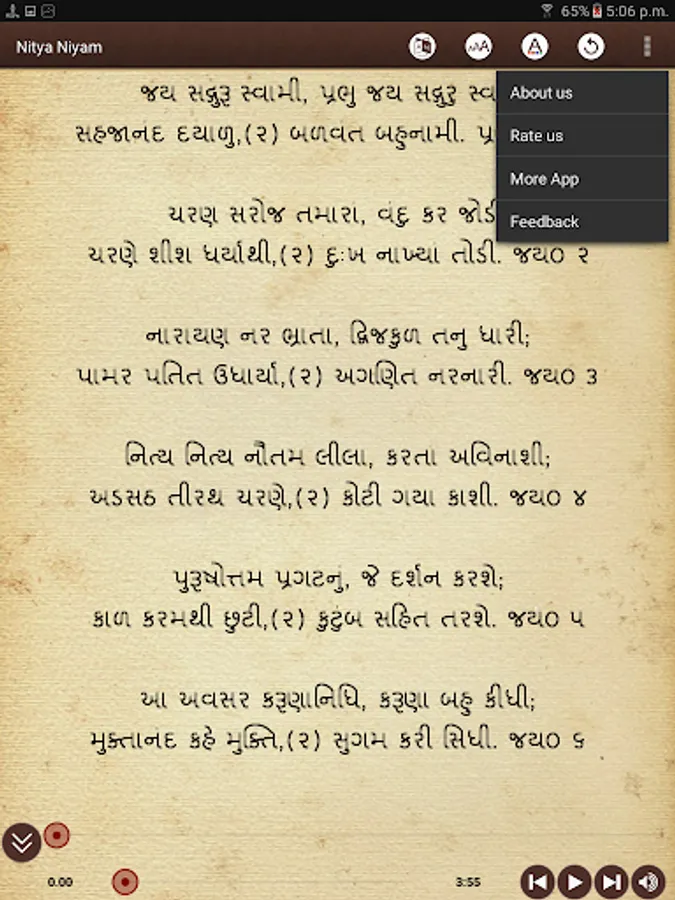 65% 5:06 p.m.
Nitya Niyam
A A A
A
About us
Rate us
More App
Feedback
જય સદ્ગુરૂ સ્વામી, પ્રભુ જય સદ્ગુરુ
સહજાનંદ દયાળુ,(૨) બળવંત બહુનામી.
ચરણ સરોજ તમારાં, વંદુ કર જોડી
ચરણે શીશ ધર્યાથી,(૨) દુઃખ નાખ્યા તોડી. જય૦ ૨
નારાયણ નર ભ્રાતા, દ્વિજકુળ તનુ ધારી;
પામર પતિત ઉધાર્યા,(૨) અગણિત નરનારી. જય૦ ૩
નિત્ય નિત્ય નૌતમ લીલા, કરતા અવિનાશી;
અડસઠ તીરથ ચરણે,(૨) કોટી ગયા કાશી. જય૦ ૪
પુરૂષોત્તમ પ્રગટનું, જે દર્શન કરશે;
કાળ કરમથી છુટી,(૨) કુટુંબ સહિત તરશે. જય૦ ૫
આ અવસર કરૂણાનિધિ, કરૂણા બહુ કીધી;
મુક્તાનંદ કહે મુક્તિ,(૨) સુગમ કરી સિધી. જય૦ ૬
0.00 3:55